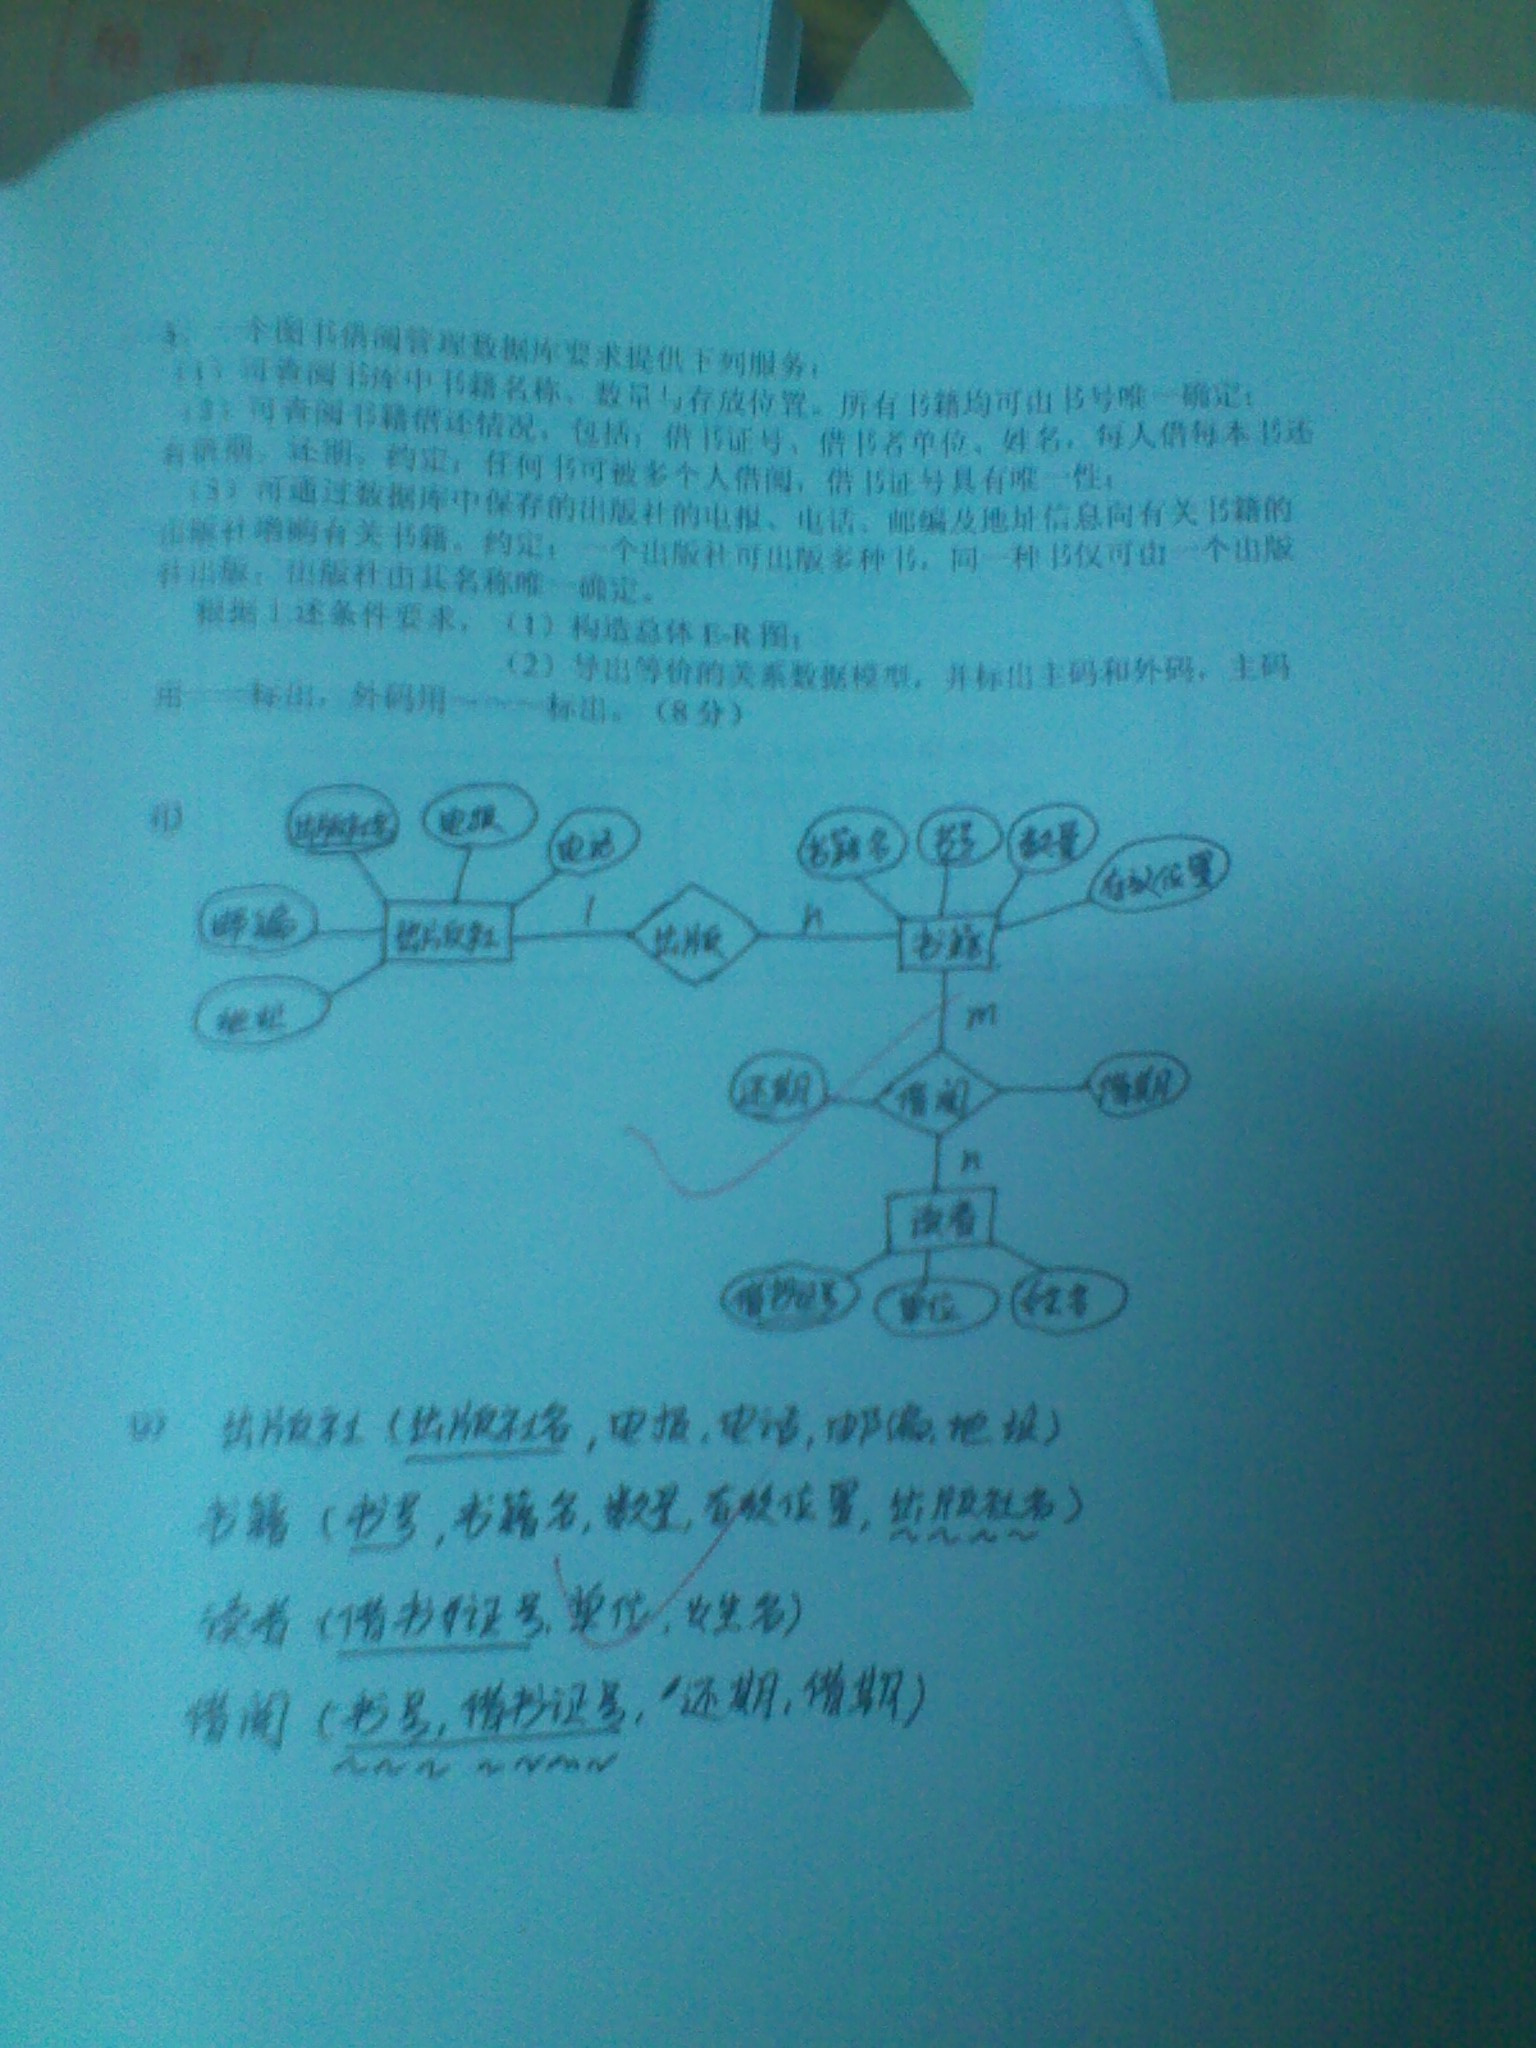 一个图书借阅管理数据库要求提供下列服务：
（1）可查阅书库中书籍名称、数量与存放位置。所有书籍均可由书号唯一确定；
（2）可查阅书籍借还情况，包括：借书证号、借书者单位、姓名，每人借每本书还
有借期、还期。约定：任何书可被多个人借阅，借书证号具有唯一性；
（3）可通过数据库中保存的出版社的电报、电话、邮编及地址信息向有关书籍的
出版社增购有关书籍。约定：一个出版社可出版多种书，同一种书仅可由一个出版
社出版，出版社由其名称唯一确定。
根据上述条件要求，（1）构造总体E-R图；
（2）导出等价的关系数据模型，并标出主码和外码，主码
用——标出，外码用～～～标出。（8分）
(1)
出版社名 电报 电话 书籍名 书号 数量 存放位置
邮编 出版社 1 出版 n 书籍
地址 m
还期 借阅 借期
n
读者
借书证号 单位 姓名
(2) 出版社（出版社名，电报，电话，邮编，地址）
书籍（书号，书籍名，数量，存放位置，出版社名）
读者（借书证号，单位，姓名）
借阅（书号，借书证号，还期，借期）